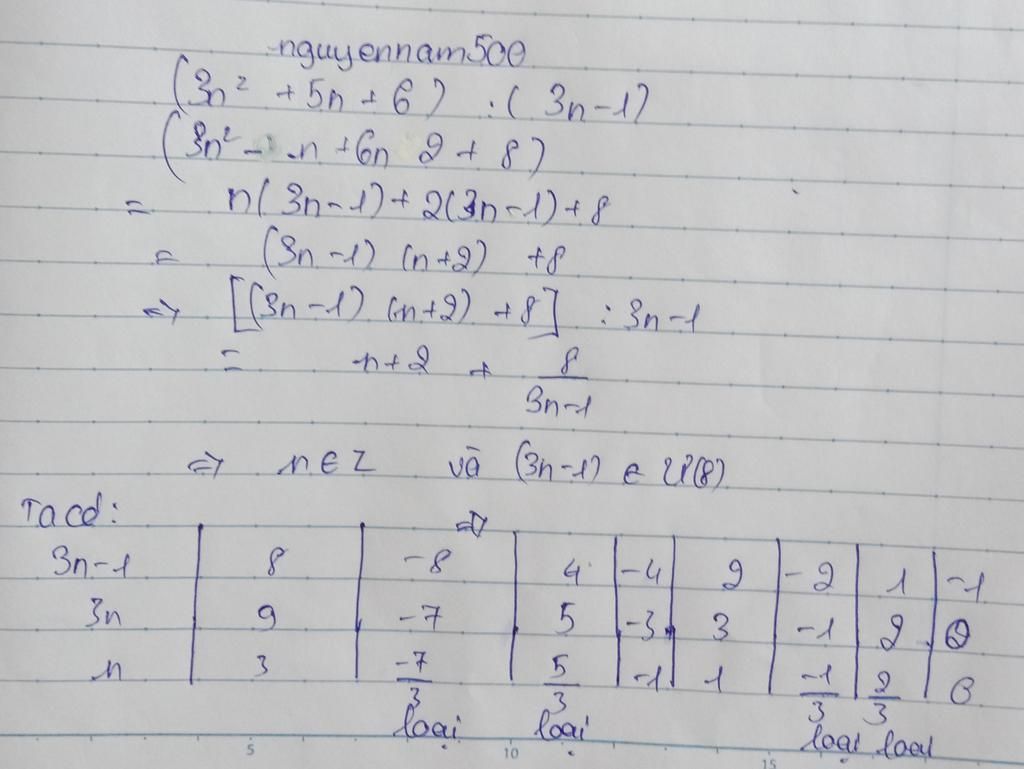 nguyennam500
(3n² + 5n + 6) : (3n-1)
(3n² - n + 6n 2 + 8)
= n(3n-1) + 2(3n-1) + 8
= (3n-1) (n+2) +8
=> [(3n-1) (n+2) +8] : 3n-1
= n+2 + 8/(3n-1)
=> n ∈ Z và (3n-1) ∈ Ư(8)
Ta có: =>
3n-1 | 8 | -8 | 4 | -4 | 2 | -2 | 1 | -1
3n | 9 | -7 | 5 | -3 | 3 | -1 | 2 | 0
n | 3 | -7/3 | 5/3 | -1 | 1 | -1/3 | 2/3 | 0
loại loại loại loại
5 10 15